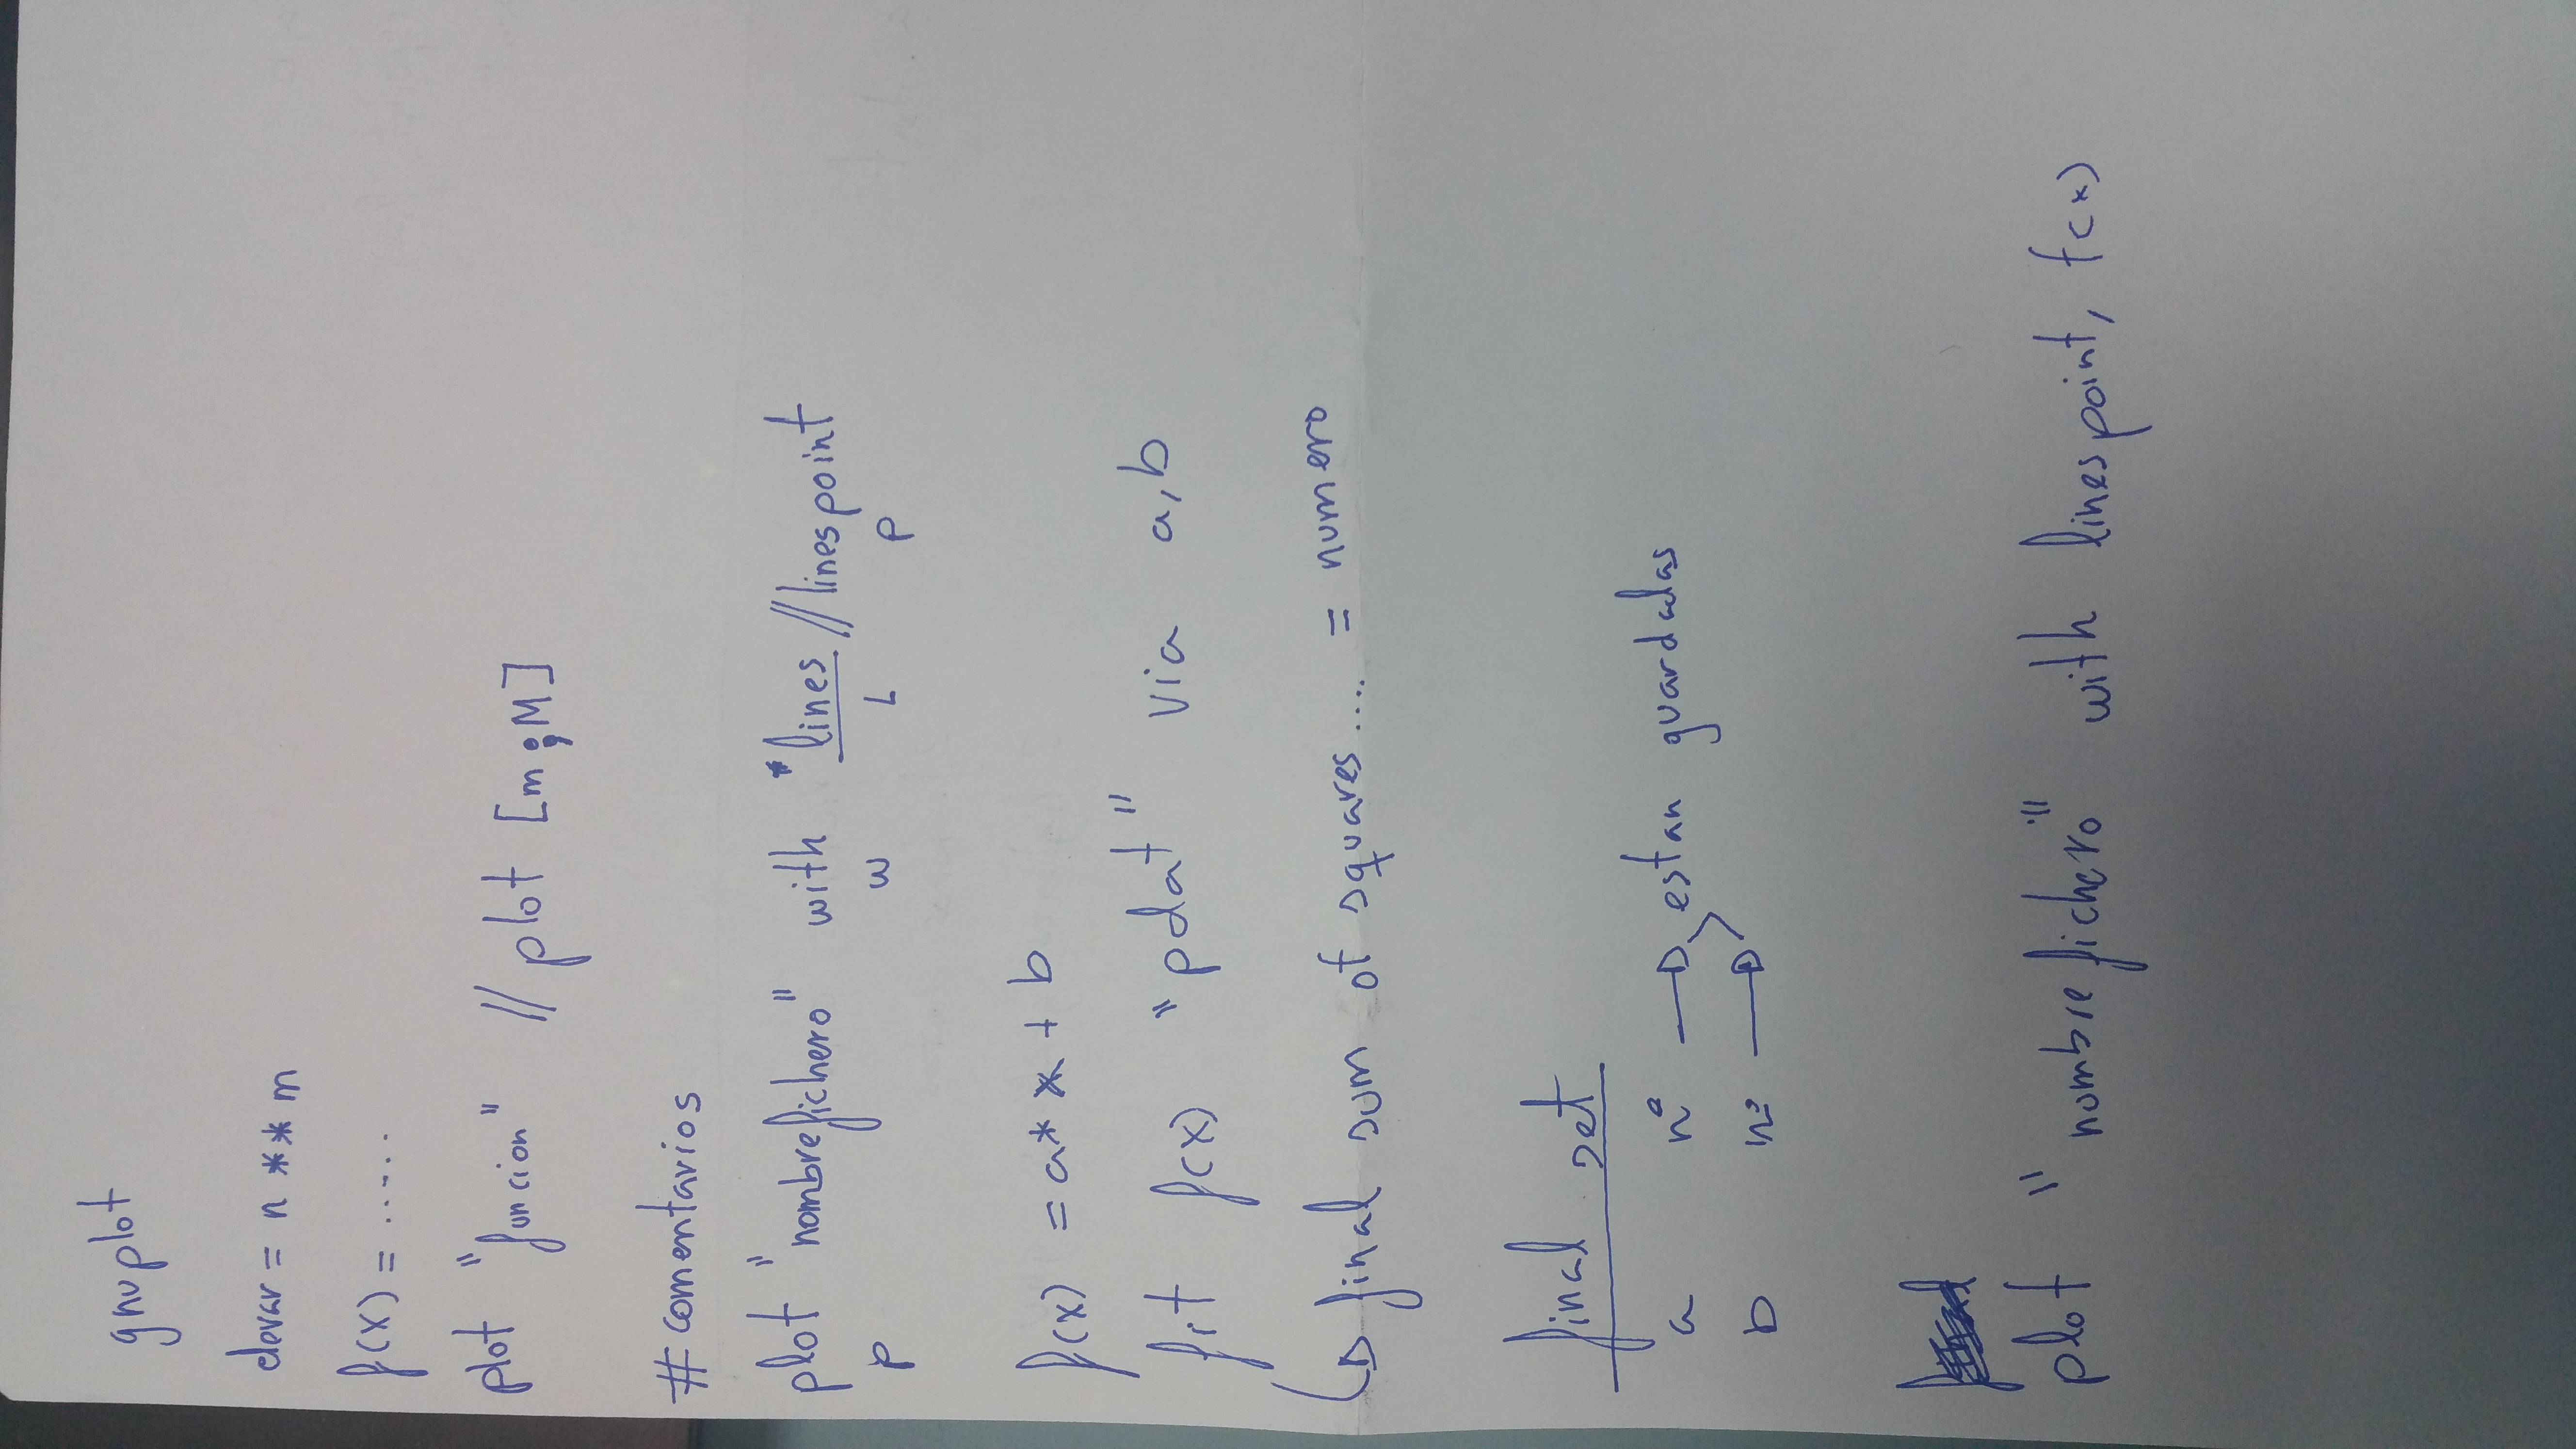 gnuplot
elevar = n ** m
f(x) = .....
plot "funcion" // plot [m;M]
# comentarios
plot "nombrefichero" with "lines // linespoint
p w L p
f(x) = a* x + b
fit f(x) "pdat" via a,b
final sum of squares .... = numero
final set
a nº estan guardadas
b nº
plot "nombrefichero" with linespoint, f(x)